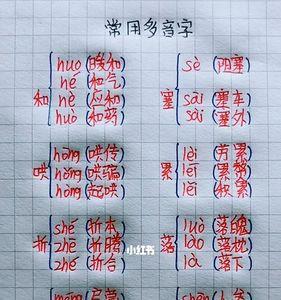 常用多音字
huo (暖和)
hé (和气)
hè (应和)
huò (和药)
和
sè (阻塞)
sāi (塞车)
sài (塞外)
塞
hōng (哄传)
hǒng (哄骗)
hòng (起哄)
哄
lèi (劳累)
léi (累赘)
lěi (积累)
累
shé (折本)
zhē (折腾)
zhé (折合)
折
luò (落魄)
lào (落枕)
là (落下)
落
小红书